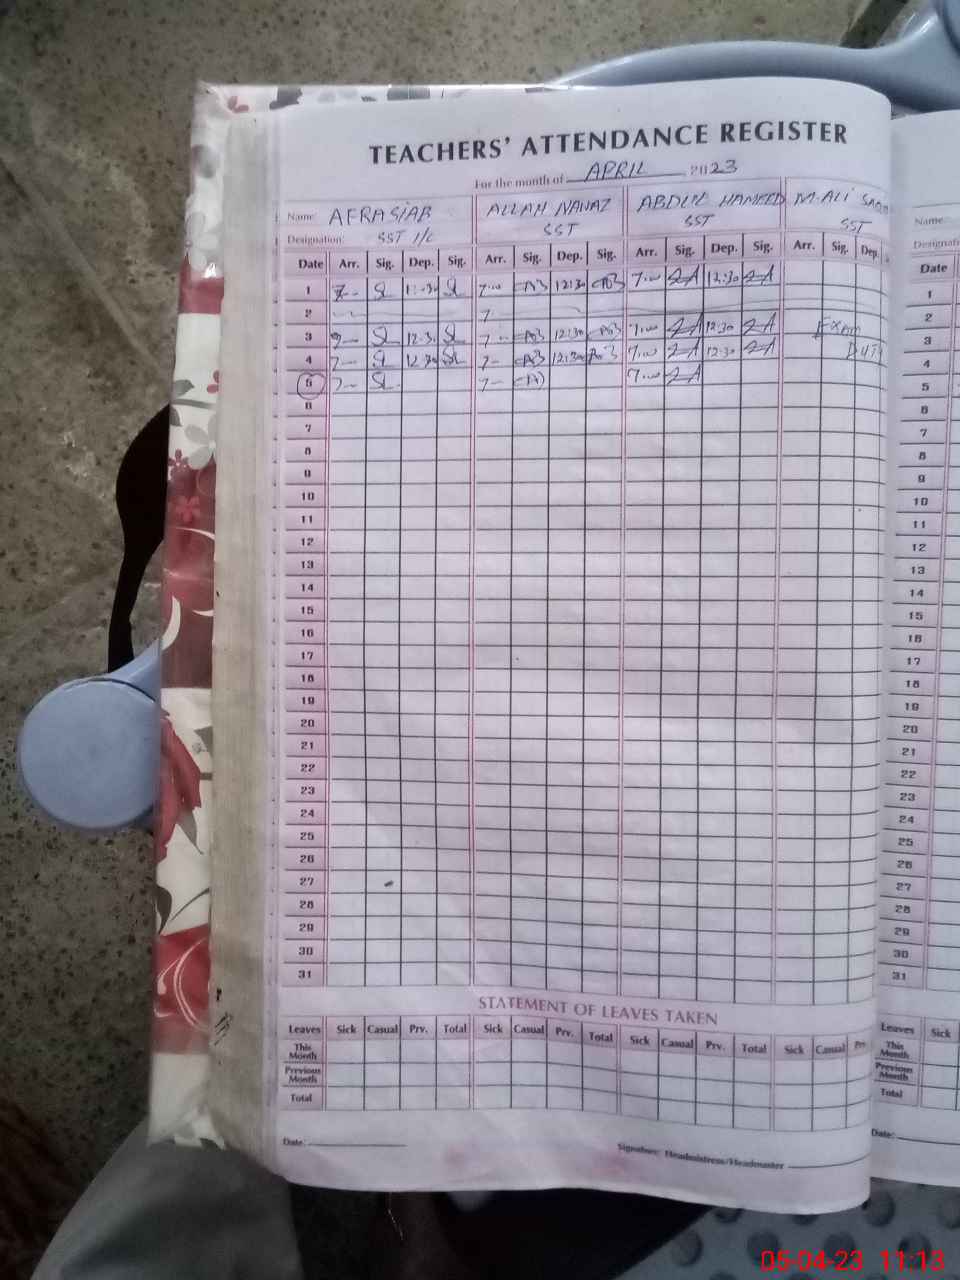 TEACHERS' ATTENDANCE REGISTER
For the month of APRIL 2023
Name: AFRASIAB ALLAH NAWAZ ABDUL HAMEED M.ALI Name:
Designation: SST I/C SST SST SST
Date Arr. Sig. Dep. Sig. Arr. Sig. Dep. Sig. Arr. Sig. Dep. Sig. Arr. Sig. Dep. Date
1 7 12:30 7:00 12:30 1
2 2
3 12:30 12:30 7:00 12:30 EXAM 3
4 12:30 12:30 7:00 12:30 DUTY 4
5 7:00 5
6 6
7 7
8 8
9 9
10 10
11 11
12 12
13 13
14 14
15 15
16 16
17 17
18 18
19 19
20 20
21 21
22 22
23 23
24 24
25 25
26 26
27 27
28 28
29 29
30 30
31 31
STATEMENT OF LEAVES TAKEN
Leaves Sick Casual Prv. Total Sick Casual Prv. Total Sick Casual Prv. Total Sick Casual Leaves Sick
This Month This Month
Previous Month Previous Month
Total Total
Date: Signature: Headmistress/Headmaster Date:
05-04-23 11:13